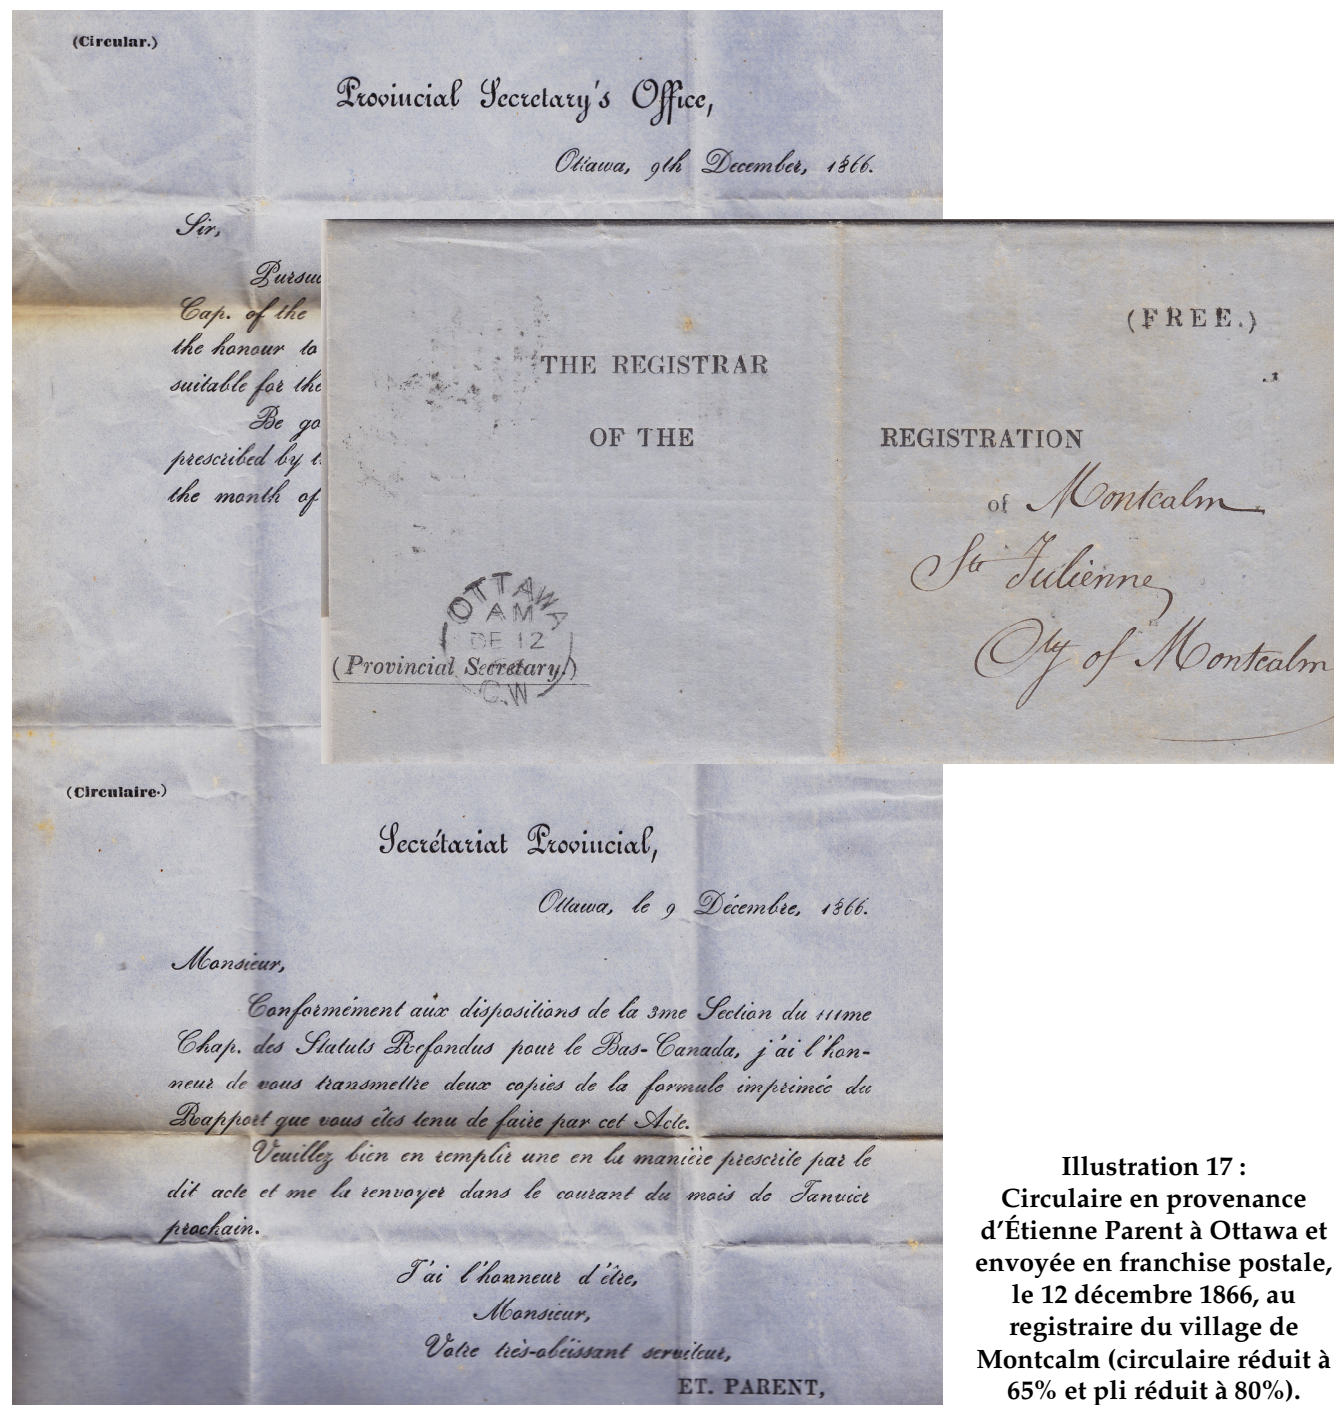 (Circular.)
Provincial Secretary's Office,
Ottawa, 9th December, 1866.
Sir,
Pursu
Cap. of the
the honour to
suitable for the
Be go
prescribed by t
the month of
(FREE.)
THE REGISTRAR
OF THE REGISTRATION
of Montcalm
Ste Julienne,
Cty of Montcalm
OTTAWA
AM
DE 12
C.W
(Provincial Secretary.)
(Circulaire.)
Secrétariat Provincial,
Ottawa, le 9 Décembre, 1866.
Monsieur,
Conformément aux dispositions de la 3me Section du 111me
Chap. des Statuts Refondus pour le Bas-Canada, j'ai l'hon-
neur de vous transmettre deux copies de la formule imprimée du
Rapport que vous êtes tenu de faire par cet Acte.
Veuillez bien en remplir une en la manière prescrite par le
dit acte et me la renvoyer dans le courant du mois de Janvier
prochain.
J'ai l'honneur d'être,
Monsieur,
Votre très-obéissant serviteur,
ET. PARENT,
Illustration 17 :
Circulaire en provenance
d'Étienne Parent à Ottawa et
envoyée en franchise postale,
le 12 décembre 1866, au
registraire du village de
Montcalm (circulaire réduit à
65% et pli réduit à 80%).